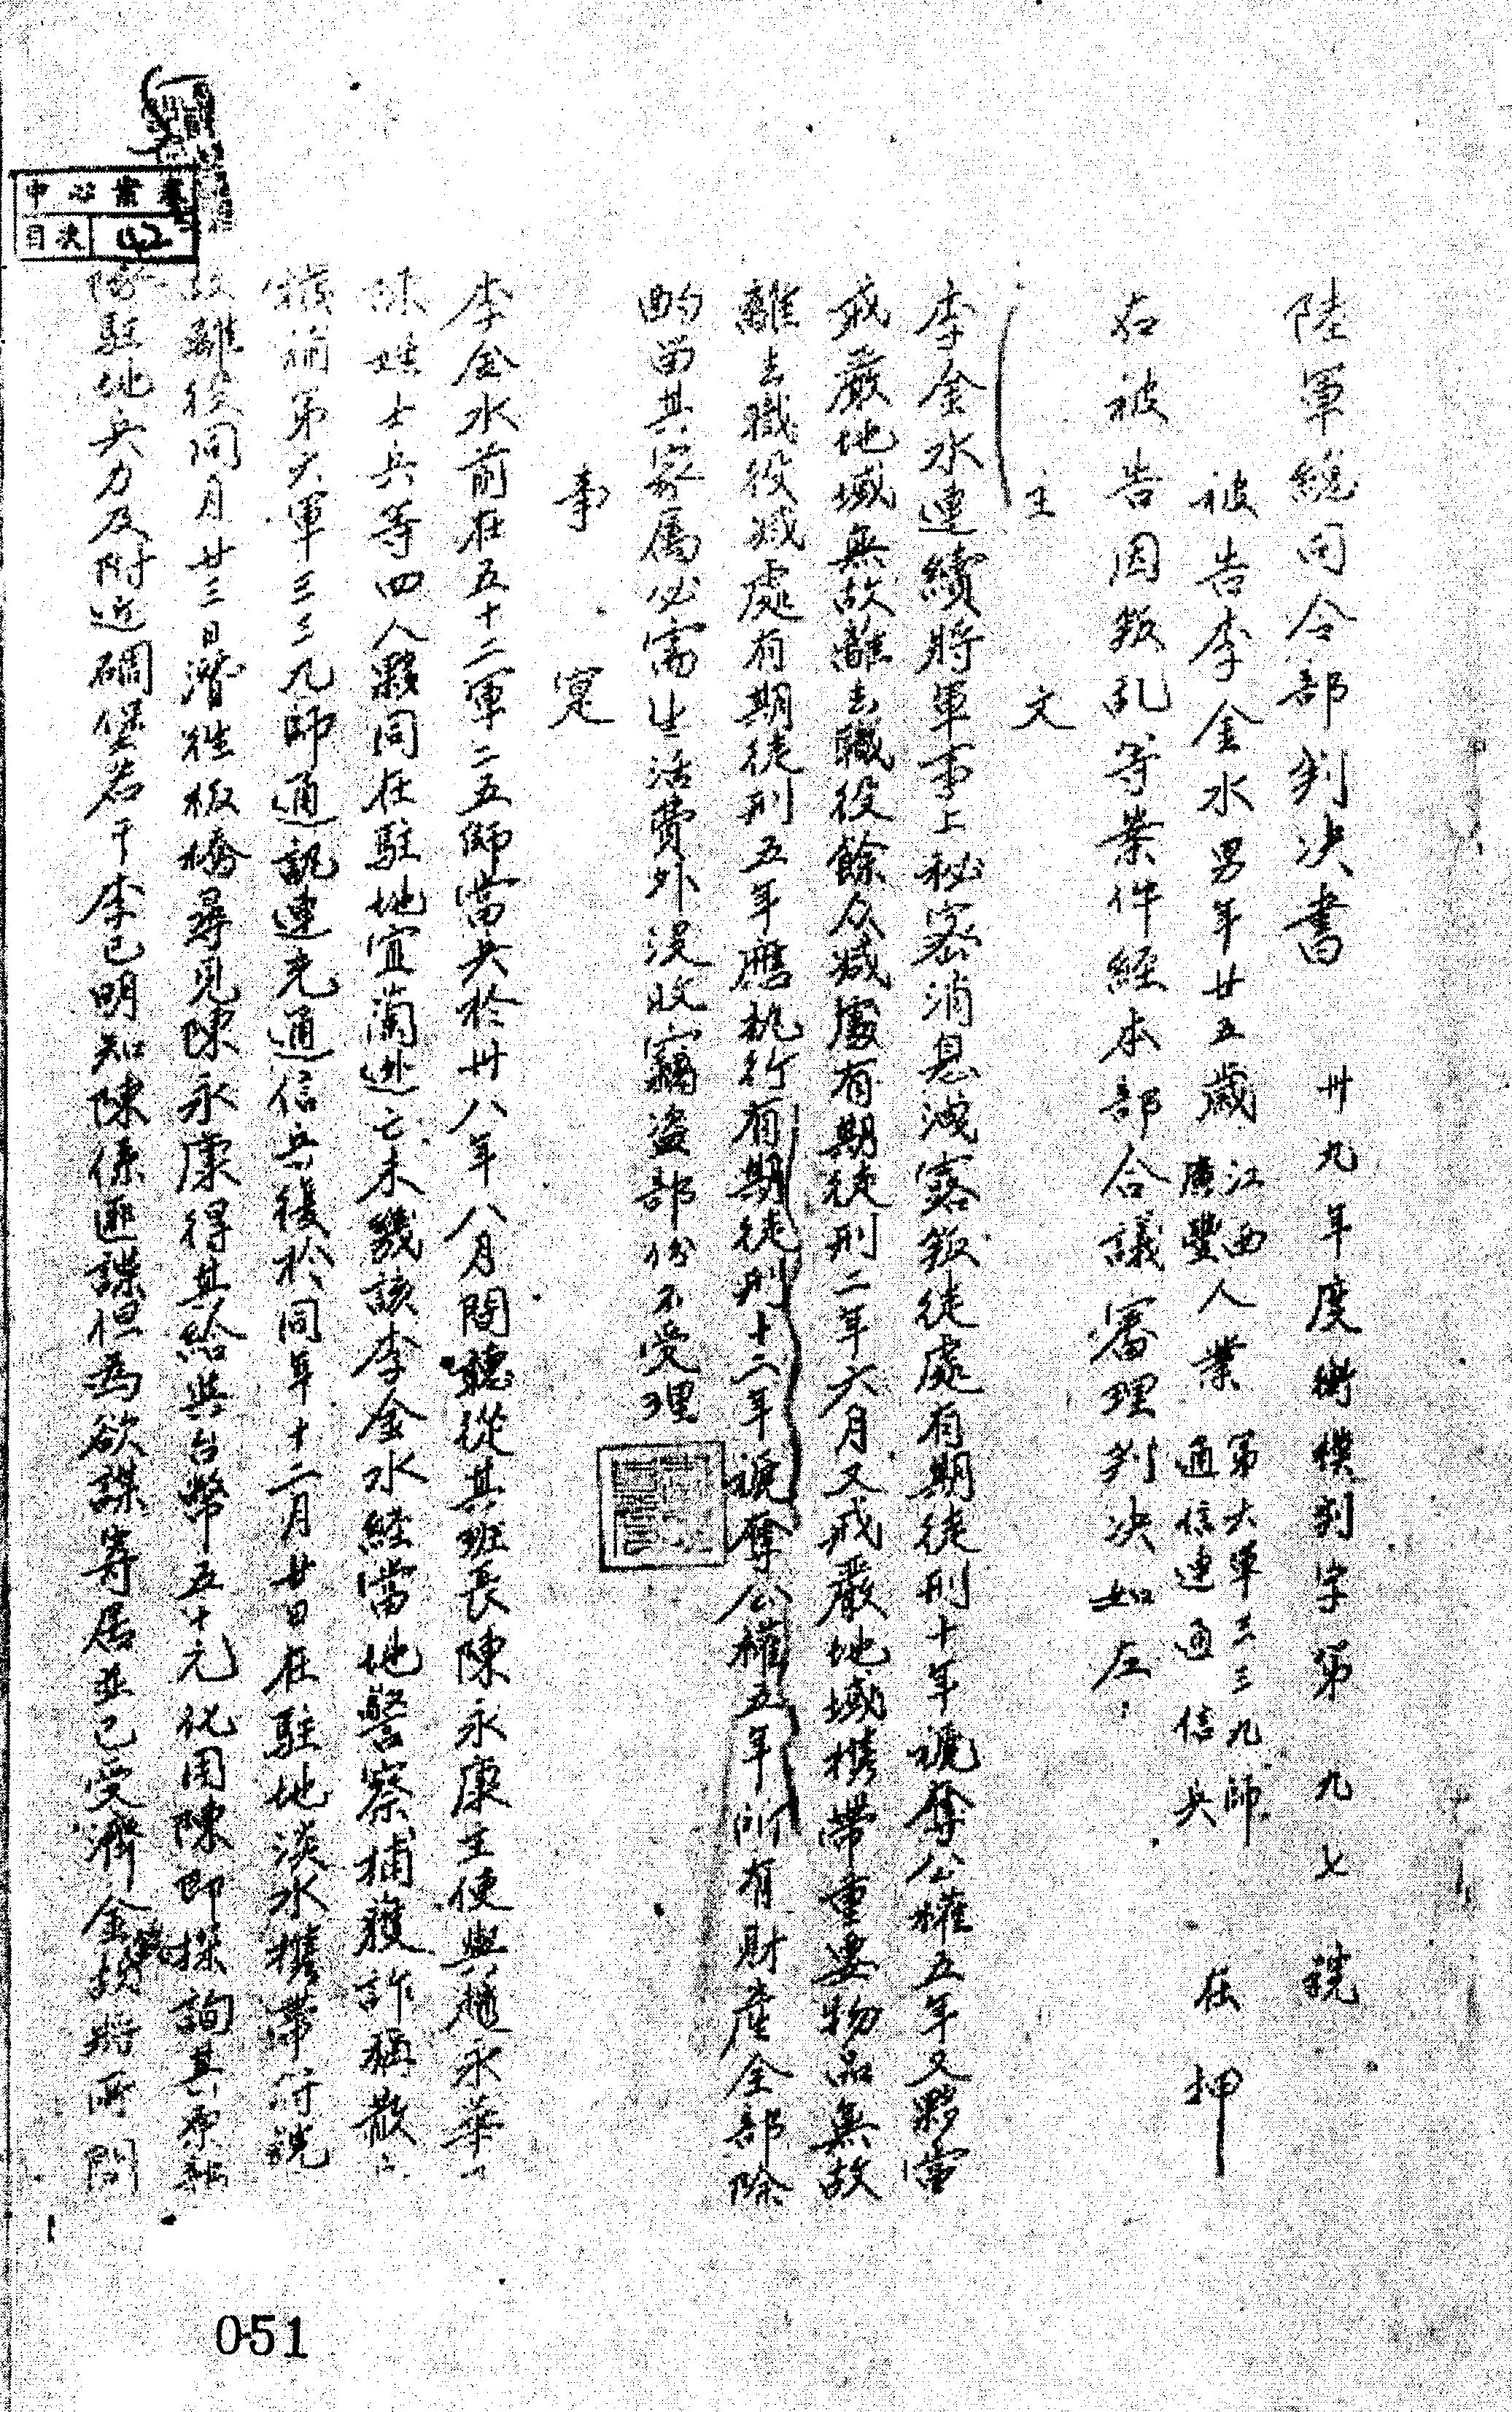 陸軍總司令部判决書　卅九年度衛模判字第九七號
被告李金水男年廿五歲江西廣豐人業第六軍三三九師通信連通信兵　在押
右被告因叛乱等案件經本部合議審理判决如左
主文
李金水連續將軍事上秘密消息洩露叛徒處有期徒刑十年褫奪公權五年又夥黨
戒嚴地域無故離去職役餘众减處有期徒刑二年六月又戒嚴地域携帶重要物品無故
離去職役减處有期徒刑五年應執行有期徒刑十二年褫奪公權五年所有財產全部除
酌留其家屬必需生活費外沒收竊盜部份不受理
事寔
李金水前在五十二軍二五師當兵於卅八年八月間聽從其班長陳永康主使與趙永華
陳姓士兵等四人夥同在駐地宜蘭逃亡未幾該李金水経當地警察捕獲詐稱散
兵撥補第六軍三三九師通訊連充通信兵後於同年十二月廿日在駐地淡水携帶符號
故離役同月廿三日潛往板橋尋見陳永康得其給與台幣五十元化用陳即探詢其原部
隊駐地兵力及附近碉堡若干李已明知陳係匪諜但為欲謀寄居並已受濟金故將所問
中心業
目次 42
051